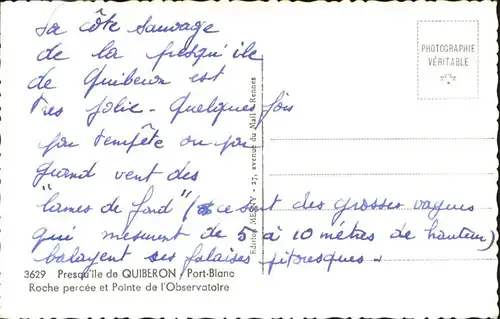 La côte sauvage
de la presqu'île
de Quiberon est
très jolie - Quelques fois
par tempête ou par
grand vent des
"lames de fond" (ce sont des grosses vagues
qui mesurent de 5 à 10 mètres de hauteur)
balayent ses falaises pitoresques -
PHOTOGRAPHIE
VÉRITABLE
Edition MESNY - 27, avenue du Mail - Rennes
3629 Presqu'île de QUIBERON / Port-Blanc
Roche percée et Pointe de l'Observatoire